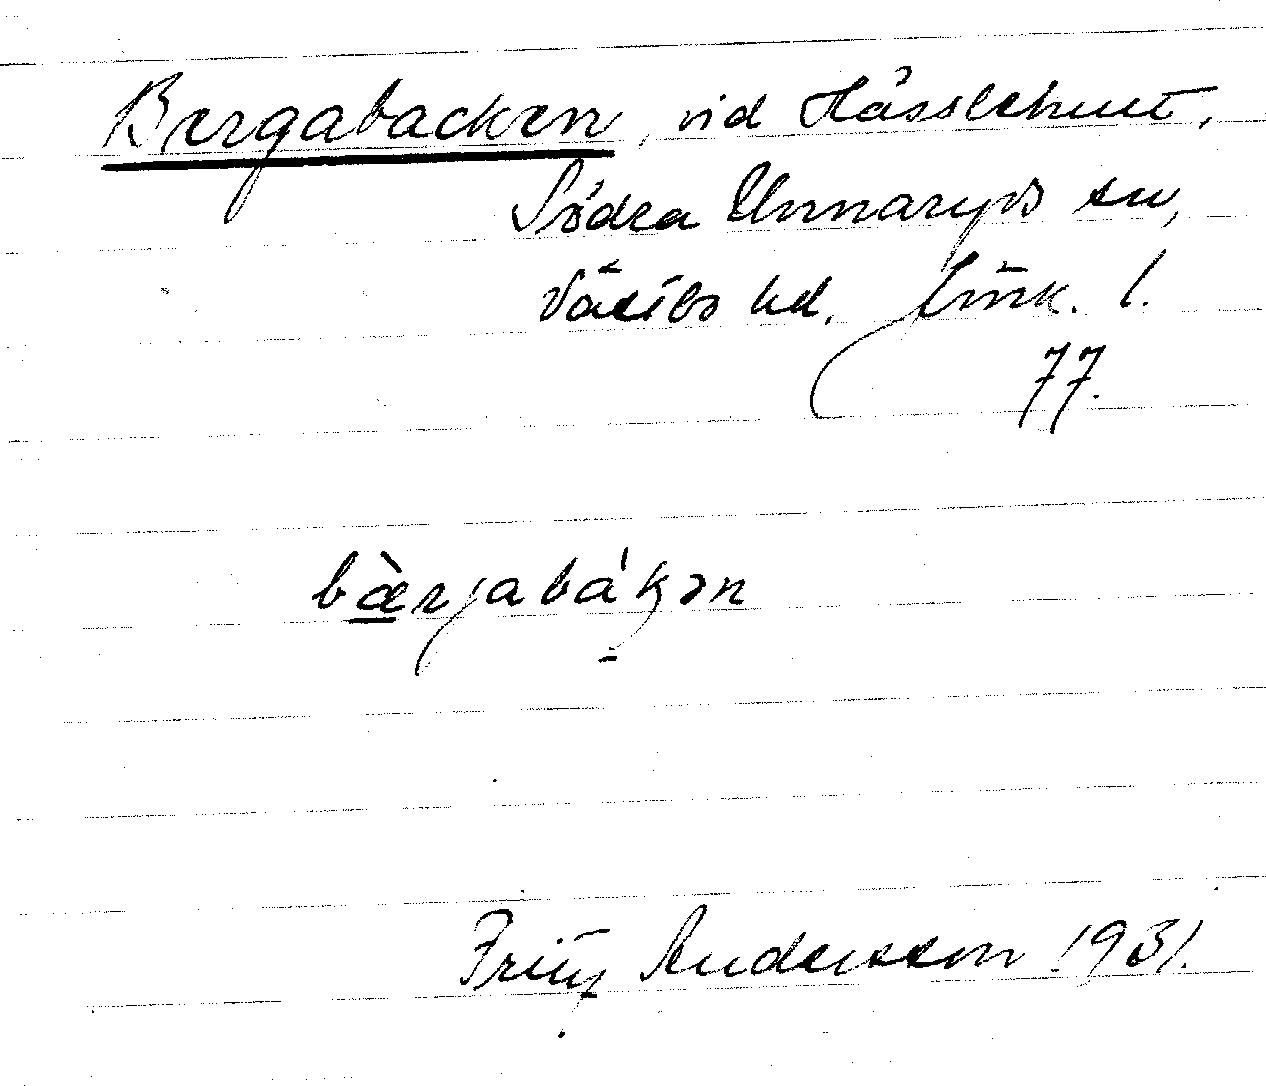 Bergabacken, vid Hässlehult,
Södra Unnaryds sn,
Västbo hd, Jönk. l.
77.
bæ̀rjabákən
Fritz Andersson 1931.